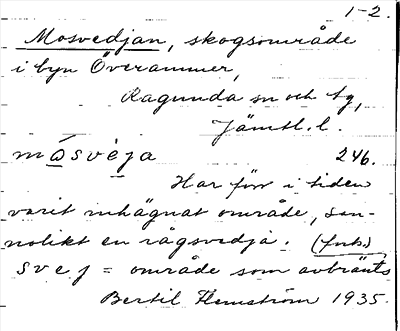 1-2.
Mosvedjan, skogsområde
i byn Överammer,
Ragunda sn och tg,
Jämtl. l.
måsvèja 246.
Har förr i tiden
varit inhägnat område, san-
nolikt en rågsvedja. (fnts)
svej = område som avbränts
Bertil Flemström 1935.